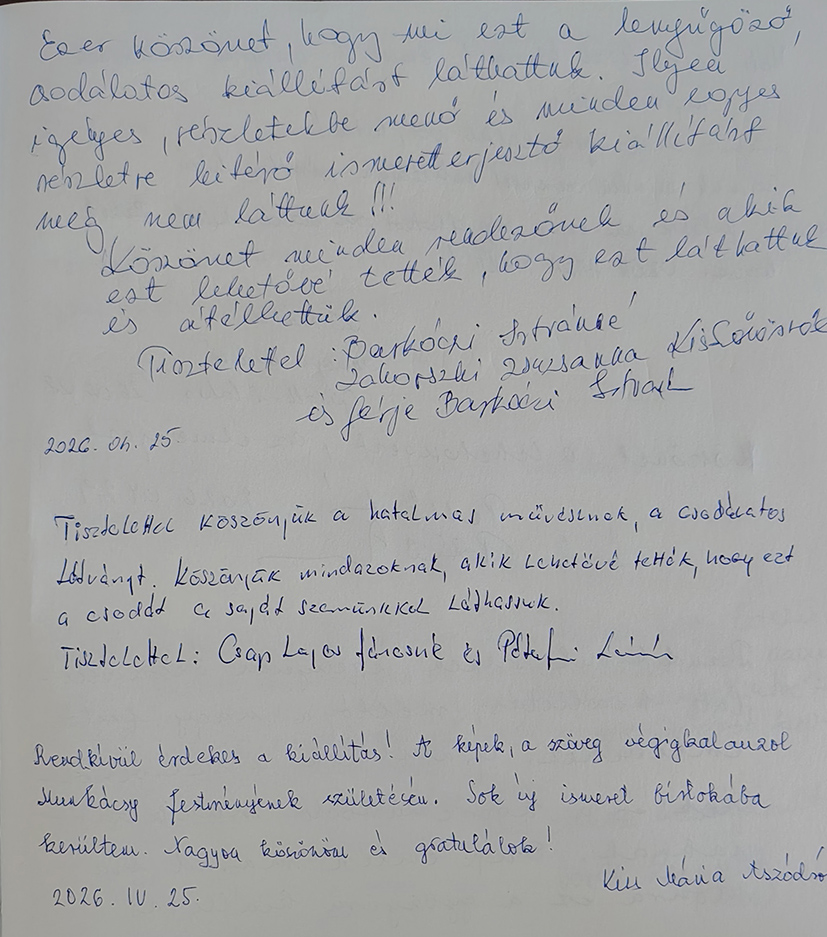 Ezer köszönet, hogy mi ezt a lenyűgöző,
csodálatos kiállítást láthattuk. Ilyen
igényes, részletekbe menő és minden egyes
részletre kitérő ismeretterjesztő kiállítást
még nem láttunk!!!
Köszönet minden rendezőnek és akik
ezt lehetővé tették, hogy ezt láthattuk
és átélhettük.
Tisztelettel: Barkóczi Istvánné
Zsuzsanna
és férje Barkóczi István
2026. 04. 25.
Tisztelettel köszönjük a hatalmas művésznek, a csodálatos
látványt. Köszönjük mindazoknak, akik lehetővé tették, hogy ezt
a csodát a saját szemünkkel láthassuk.
Tisztelettel: Csap Lajos és
Rendkívül érdekes a kiállítás! A képek, a szöveg végigkalauzol
Munkácsy festményének születésén. Sok új ismeret birtokába
kerültem. Nagyon köszönöm és gratulálok!
Kiss Mária
2026. IV. 25.